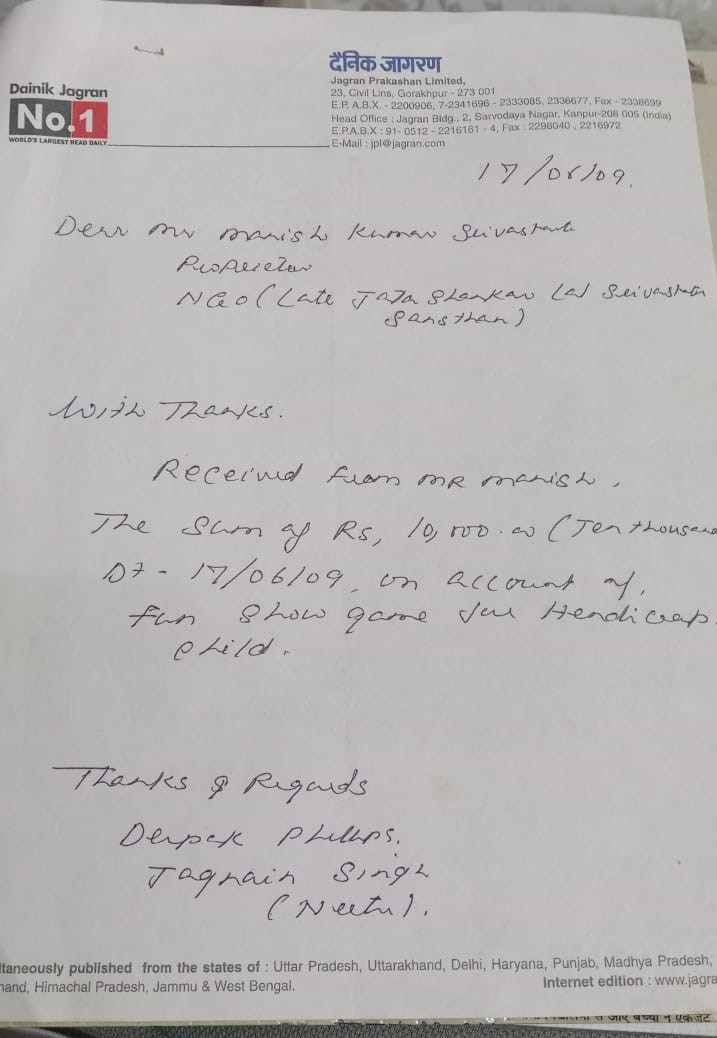 Dainik Jagran
No.1
WORLD'S LARGEST READ DAILY
दैनिक जागरण
Jagran Prakashan Limited,
23, Civil Lins, Gorakhpur - 273 001
E.P. A.B.X. - 2200906, 7-2341696 - 2333085, 2336677, Fax - 2338699
Head Office : Jagran Bldg., 2, Sarvodaya Nagar, Kanpur-208 005 (India)
E.P.A.B.X : 91- 0512 - 2216161 - 4, Fax : 2298040 , 2216972
E-Mail : jpl@jagran.com
17/06/09.
Dear Mr Manish Kumar Srivastava
Proprietor
NGO (Late Jata Shankar Lal Srivastava
Sansthan)
With Thanks.
Received from MR Manish,
The Sum of Rs, 10,000.00 (Ten thousand
DT - 17/06/09, on account of,
fun show game for Handicap
child.
Thanks & Regards
Deepak Phillips.
Jagnain Singh
(Neetu).
ltaneously published from the states of : Uttar Pradesh, Uttarakhand, Delhi, Haryana, Punjab, Madhya Pradesh,
hand, Himachal Pradesh, Jammu & West Bengal.
Internet edition : www.jagra